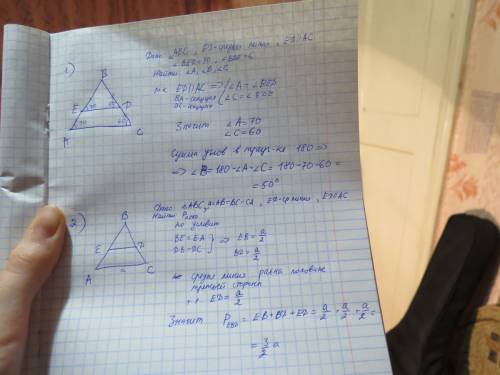 1)
Дано: △ABC, ED-средняя линия, ED||AC
∠BED=70, ∠BDE=6
Найти: ∠A, ∠B, ∠C
B
E
70
60
D
A
70
60
C
т.к. ED||AC => ∠A = ∠BED
BA-секущая ∠C = ∠BDE
BC-секущая
Значит ∠A=70
∠C=60
Сумма углов в треуг-ке 180 =>
=> ∠B=180-∠A-∠C= 180-70-60=
=50°
2)
Дано: △ABC, a=AB=BC=CA, ED-ср линия, ED||AC
Найти P
по условию
B
E
D
A
a
C
BE=EA => EB= a/2
DB=DC BD= a/2
средняя линия равна половине
третьей стороны
т.е. ED= a/2
Значит P EBD = EB+BD+ED= a/2 + a/2 + a/2 =
= 3/2 a